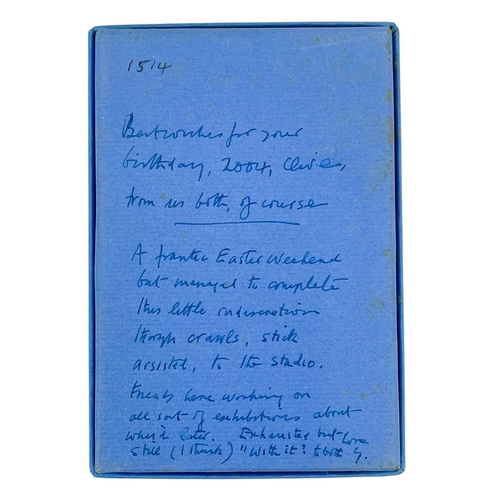 1514
Best wishes for your
birthday, 2004, Clive,
from us both, of course
A frantic Easter Weekend
but managed to complete
this little
through crawls, stick
assisted, to the studio.
Friends here working on
all sort of exhibitions about
which later. Exhausted but
still (I think) "with it"! Love to both